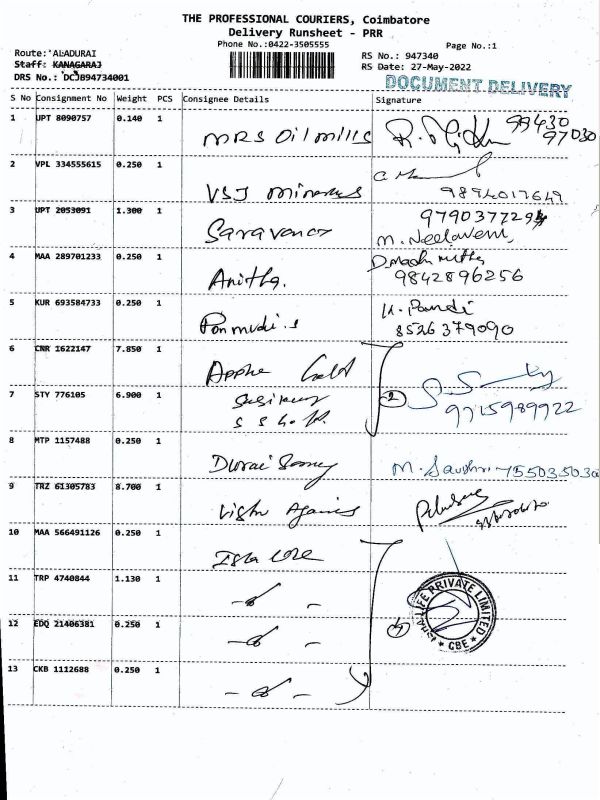 THE PROFESSIONAL COURIERS, Coimbatore
Delivery Runsheet - PRR
Phone No.:0422-3505555
Page No.:1
Route: ALADURAI
RS No.: 947340
Staff: KANAGARAJ
RS Date: 27-May-2022
DRS No.: DCJB94734001
DOCUMENT DELIVERY
S No Consignment No Weight PCS Consignee Details Signature
1 UPT 8090757 0.140 1 MRS Oil mills 99430
97030
2 VPL 334555615 0.250 1 VSJ
9894017649
3 UPT 2053091 1.300 1 Saravana 9790377294
M. Neelaveni
4 MAA 289701233 0.250 1 Anitha.
9842896256
5 KUR 693584733 0.250 1 Ponmudi.s K. Pandi
8526379090
6 CNR 1622147 7.850 1
7 STY 776105 6.900 1 2
9715989922
8 MTP 1157488 0.250 1 Durai Samy M.
9 TRZ 61305783 8.700 1
10 MAA 566491126 0.250 1
11 TRP 4740844 1.130 1
12 EDQ 21406381 0.250 1
LIFE PRIVATE LIMITED
* CBE *
13 CKB 1112688 0.250 1